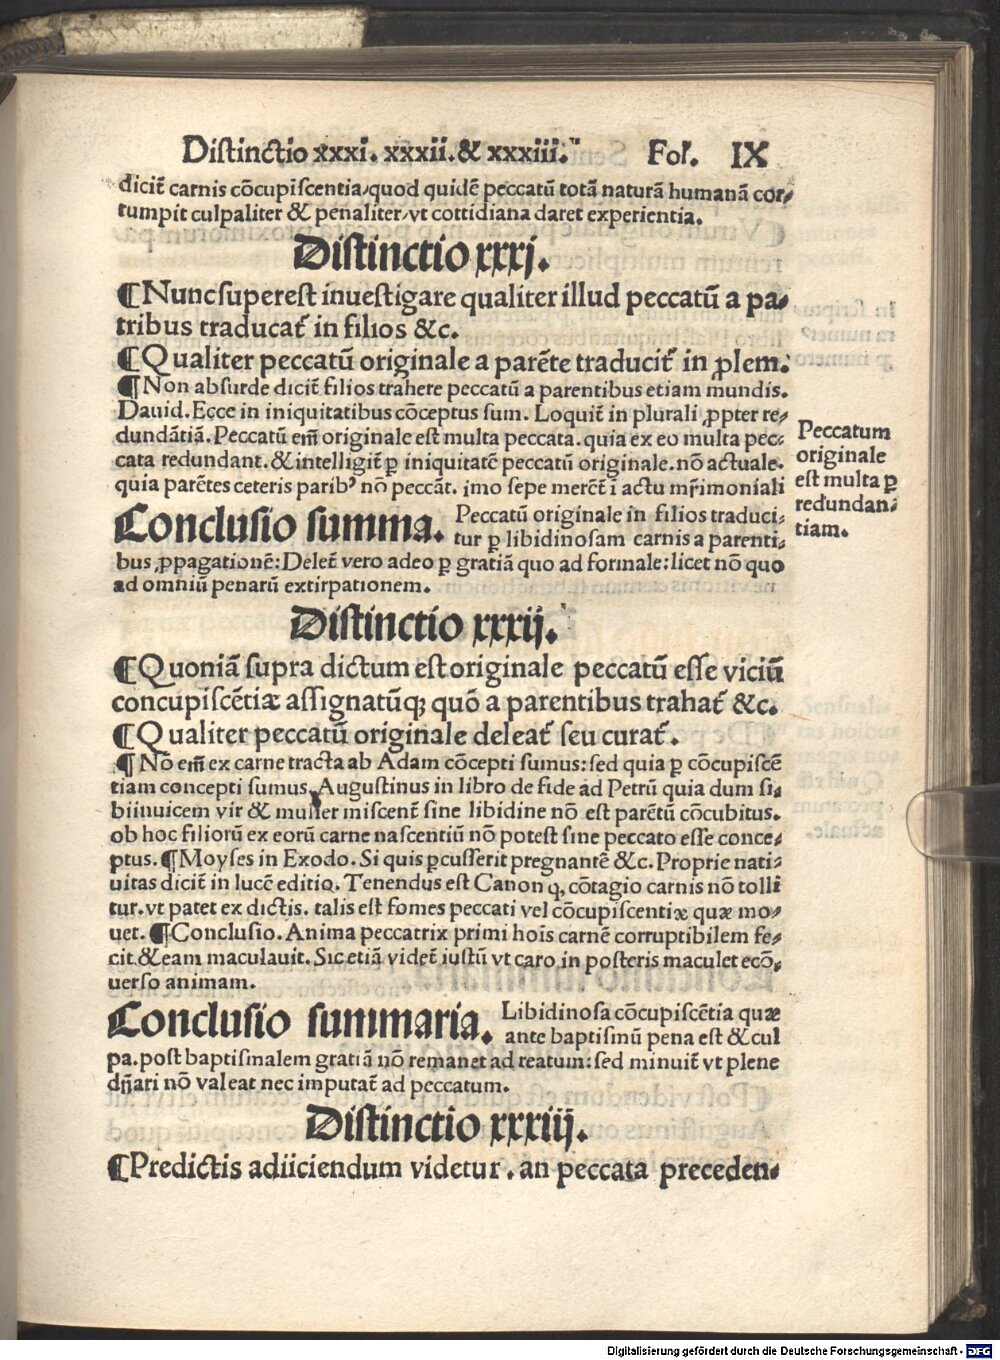 Distinctio xxxi. xxxii. & xxxiii. Fol. IX
dicit̃ carnis cōcupiscentia/quod quidē peccatū totā naturā humanā cor⸗
rumpit culpaliter & penaliter/vt cottidiana daret experientia.
Distinctio xxxj.
¶Nunc superest inuestigare qualiter illud peccatū a pa⸗
tribus traducat̃ in filios &c.
¶Qualiter peccatū originale a parēte traducit̃ in ꝓlem.
¶Non absurde dicit̃ filios trahere peccatū a parentibus etiam mundis.
Dauid. Ecce in iniquitatibus cōceptus sum. Loquit̃ in plurali ꝓpter re⸗
dundātiā. Peccatū em̃ originale est multa peccata. quia ex eo multa pec⸗
cata redundant. & intelligit̃ ꝑ iniquitatē peccatū originale. nō actuale.
quia parētes ceteris paribꝰ nō peccāt. imo sepe merēt̃ ī actu mr̃imoniali
Peccatum
originale
est multa ꝑ
redundan⸗
tiam.
Conclusio summa. Peccatū originale in filios traduci⸗
tur ꝑ libidinosam carnis a parenti⸗
bus ꝓpagationē: Delet̃ vero adeo ꝑ gratiā quo ad formale: licet nō quo
ad omniū penarū extirpationem.
Distinctio xxxij.
¶Quoniā supra dictum est originale peccatū esse viciū
concupiscētiæ assignatūqꝫ quō a parentibus trahat̃ &c.
¶Qualiter peccatū originale deleat̃ seu curat̃.
¶Nō em̃ ex carne tracta ab Adam cōcepti sumus: sed quia ꝑ cōcupiscē
tiam concepti sumus. Augustinus in libro de fide ad Petrū quia dum si⸗
biinuicem vir & mulier miscent̃ sine libidine nō est parētū cōcubitus.
ob hoc filiorū ex eorū carne nascentiū nō potest sine peccato esse conce⸗
ptus. ¶Moyses in Exodo. Si quis ꝑcusserit pregnantē &c. Proprie nati⸗
uitas dicit̃ in lucē editio. Tenendus est Canon ꝙ cōtagio carnis nō tolli
tur. vt patet ex dictis. talis est fomes peccati vel cōcupiscentiæ quæ mo⸗
uet. ¶Conclusio. Anima peccatrix primi hoīs carnē corruptibilem fe⸗
cit & eam maculauit. Sic etiā videt̃ iustū vt caro in posteris maculet ecō⸗
uerso animam.
Conclusio summaria. Libidinosa cōcupiscētia quæ
ante baptismū pena est & cul
pa. post baptismalem gratiā nō remanet ad reatum: sed minuit̃ vt plene
dñari nō valeat nec imputat̃ ad peccatum.
Distinctio xxxiij.
¶Predictis adiiciendum videtur. an peccata preceden⸗
Digitalisierung gefördert durch die Deutsche Forschungsgemeinschaft - DFG